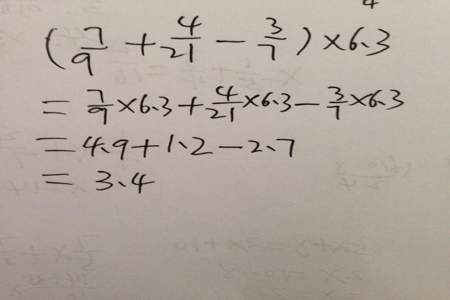 (7/9 + 4/21 - 3/7) ×6.3
= 7/9 ×6.3 + 4/21 ×6.3 - 3/7 ×6.3
= 4.9 + 1.2 - 2.7
= 3.4